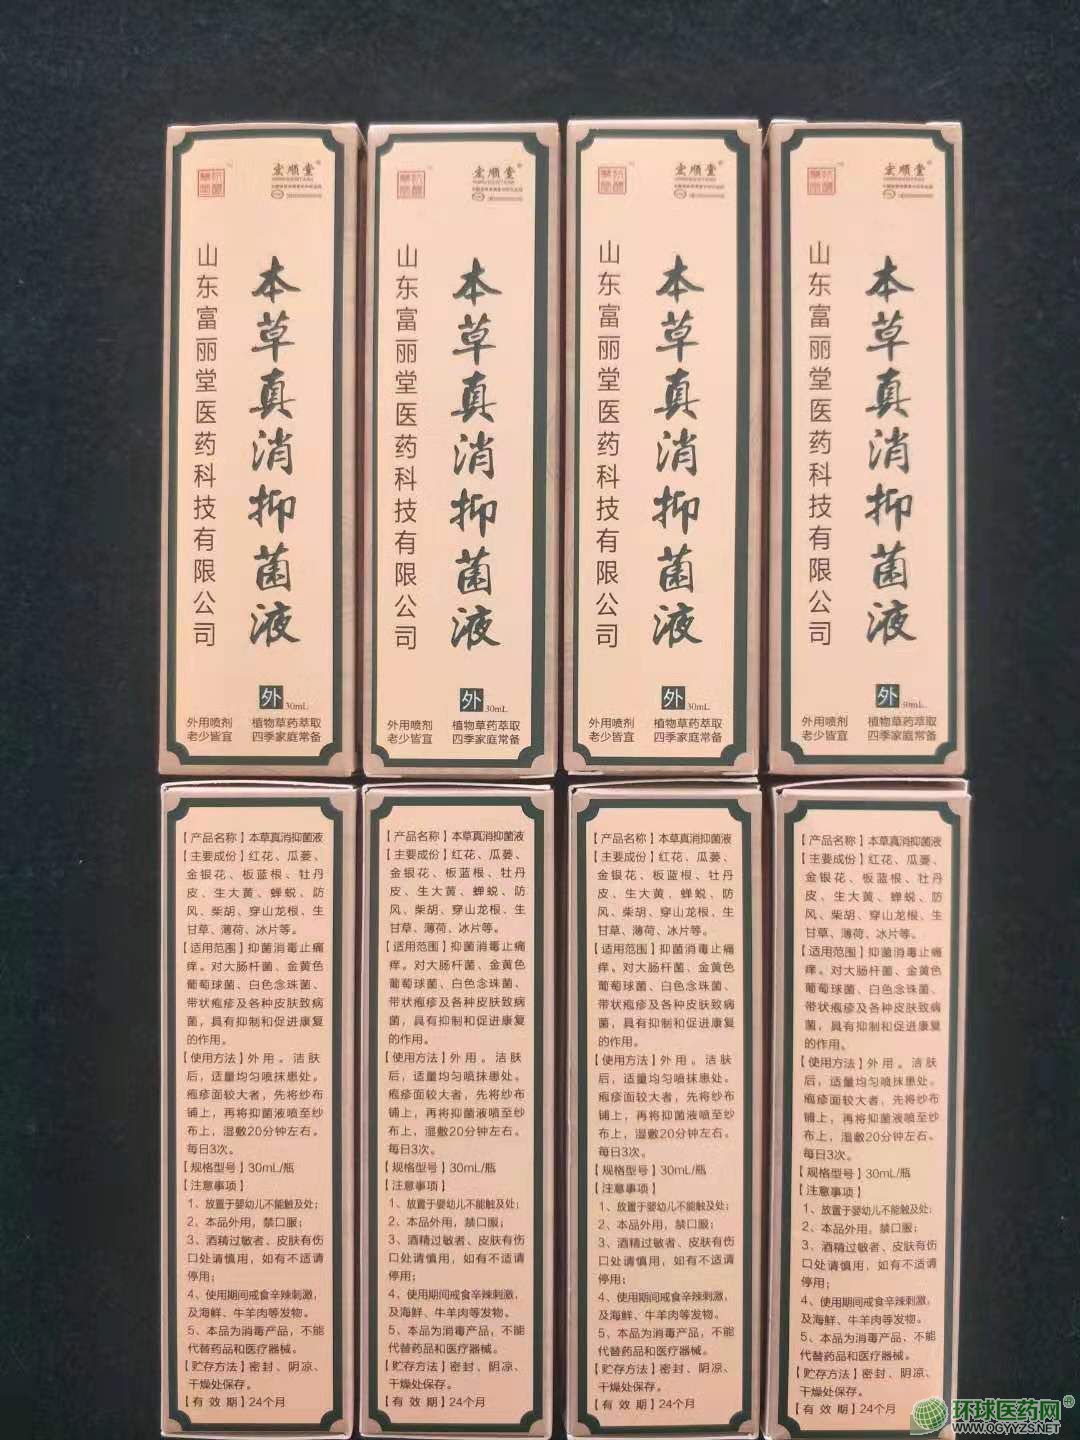 宏顺堂®
本草真消抑菌液
山东富丽堂医药科技有限公司
外 30mL
外用喷剂 植物草药萃取
老少皆宜 四季家庭常备
宏顺堂®
本草真消抑菌液
山东富丽堂医药科技有限公司
外 30mL
外用喷剂 植物草药萃取
老少皆宜 四季家庭常备
宏顺堂®
本草真消抑菌液
山东富丽堂医药科技有限公司
外 30mL
外用喷剂 植物草药萃取
老少皆宜 四季家庭常备
宏顺堂®
本草真消抑菌液
山东富丽堂医药科技有限公司
外 30mL
外用喷剂 植物草药萃取
老少皆宜 四季家庭常备
【产品名称】本草真消抑菌液
【主要成份】红花、瓜蒌、
金银花、板蓝根、牡丹
皮、生大黄、蝉蜕、防
风、柴胡、穿山龙根、生
甘草、薄荷、冰片等。
【适用范围】抑菌消毒止痛
痒。对大肠杆菌、金黄色
葡萄球菌、白色念珠菌、
带状疱疹及各种皮肤致病
菌，具有抑制和促进康复
的作用。
【使用方法】外用。洁肤
后，适量均匀喷抹患处。
疱疹面较大者，先将纱布
铺上，再将抑菌液喷至纱
布上，湿敷20分钟左右。
每日3次。
【规格型号】30mL/瓶
【注意事项】
1、放置于婴幼儿不能触及处；
2、本品外用，禁口服；
3、酒精过敏者、皮肤有伤
口处请慎用，如有不适请
停用；
4、使用期间戒食辛辣刺激，
及海鲜、牛羊肉等发物。
5、本品为消毒产品，不能
代替药品和医疗器械。
【贮存方法】密封、阴凉、
干燥处保存。
【有效期】24个月
【产品名称】本草真消抑菌液
【主要成份】红花、瓜蒌、
金银花、板蓝根、牡丹
皮、生大黄、蝉蜕、防
风、柴胡、穿山龙根、生
甘草、薄荷、冰片等。
【适用范围】抑菌消毒止痛
痒。对大肠杆菌、金黄色
葡萄球菌、白色念珠菌、
带状疱疹及各种皮肤致病
菌，具有抑制和促进康复
的作用。
【使用方法】外用。洁肤
后，适量均匀喷抹患处。
疱疹面较大者，先将纱布
铺上，再将抑菌液喷至纱
布上，湿敷20分钟左右。
每日3次。
【规格型号】30mL/瓶
【注意事项】
1、放置于婴幼儿不能触及处；
2、本品外用，禁口服；
3、酒精过敏者、皮肤有伤
口处请慎用，如有不适请
停用；
4、使用期间戒食辛辣刺激，
及海鲜、牛羊肉等发物。
5、本品为消毒产品，不能
代替药品和医疗器械。
【贮存方法】密封、阴凉、
干燥处保存。
【有效期】24个月
【产品名称】本草真消抑菌液
【主要成份】红花、瓜蒌、
金银花、板蓝根、牡丹
皮、生大黄、蝉蜕、防
风、柴胡、穿山龙根、生
甘草、薄荷、冰片等。
【适用范围】抑菌消毒止痛
痒。对大肠杆菌、金黄色
葡萄球菌、白色念珠菌、
带状疱疹及各种皮肤致病
菌，具有抑制和促进康复
的作用。
【使用方法】外用。洁肤
后，适量均匀喷抹患处。
疱疹面较大者，先将纱布
铺上，再将抑菌液喷至纱
布上，湿敷20分钟左右。
每日3次。
【规格型号】30mL/瓶
【注意事项】
1、放置于婴幼儿不能触及处；
2、本品外用，禁口服；
3、酒精过敏者、皮肤有伤
口处请慎用，如有不适请
停用；
4、使用期间戒食辛辣刺激，
及海鲜、牛羊肉等发物。
5、本品为消毒产品，不能
代替药品和医疗器械。
【贮存方法】密封、阴凉、
干燥处保存。
【有效期】24个月
【产品名称】本草真消抑菌液
【主要成份】红花、瓜蒌、
金银花、板蓝根、牡丹
皮、生大黄、蝉蜕、防
风、柴胡、穿山龙根、生
甘草、薄荷、冰片等。
【适用范围】抑菌消毒止痛
痒。对大肠杆菌、金黄色
葡萄球菌、白色念珠菌、
带状疱疹及各种皮肤致病
菌，具有抑制和促进康复
的作用。
【使用方法】外用。洁肤
后，适量均匀喷抹患处。
疱疹面较大者，先将纱布
铺上，再将抑菌液喷至纱
布上，湿敷20分钟左右。
每日3次。
【规格型号】30mL/瓶
【注意事项】
1、放置于婴幼儿不能触及处；
2、本品外用，禁口服；
3、酒精过敏者、皮肤有伤
口处请慎用，如有不适请
停用；
4、使用期间戒食辛辣刺激，
及海鲜、牛羊肉等发物。
5、本品为消毒产品，不能
代替药品和医疗器械。
【贮存方法】密封、阴凉、
干燥处保存。
【有效期】24个月
环球医药网®
WWW.QGYYZS.NET